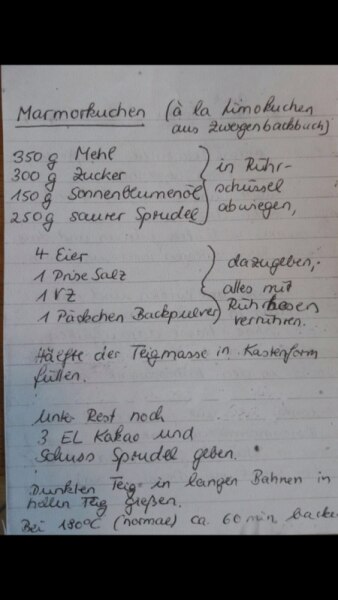 Marmorkuchen (à la Limokuchen
aus Zwergenbackbuch)
350 g Mehl
300 g Zucker
150 g Sonnenblumenöl
250 g saurer Sprudel
in Rühr-
schüssel
abwiegen,
4 Eier
1 Prise Salz
1 VZ
1 Päckchen Backpulver
dazugeben,
alles mit
Rührbesen
verrühren.
Hälfte der Teigmasse in Kastenform
füllen.
Unter Rest noch
3 EL Kakao und
Schuss Sprudel geben.
Dunklen Teig in langen Bahnen in
hellen Teig gießen.
Bei 180°C (normal) ca. 60 min backe